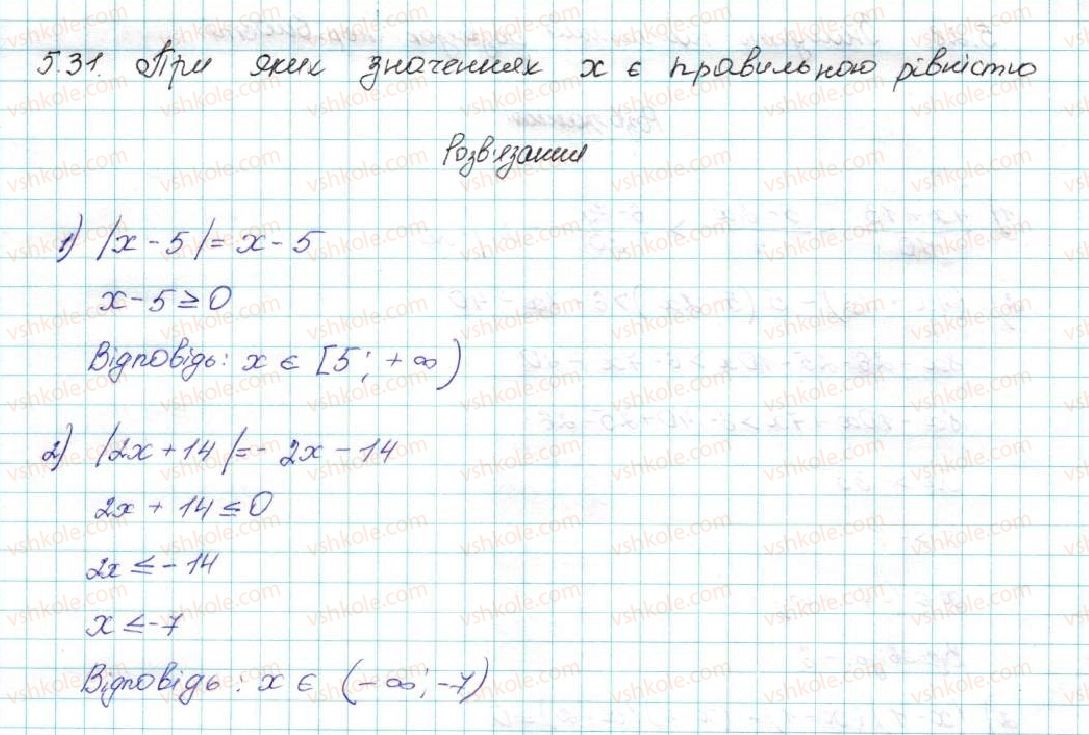 5.31. При яких значеннях x є правильною рівністю
Розв'язання
1) |x - 5| = x - 5
x - 5 ≥ 0
Відповідь: x є [5; +∞)
2) |2x + 14| = - 2x - 14
2x + 14 ≤ 0
2x ≤ - 14
x ≤ -7
Відповідь: x є (-∞; -7)